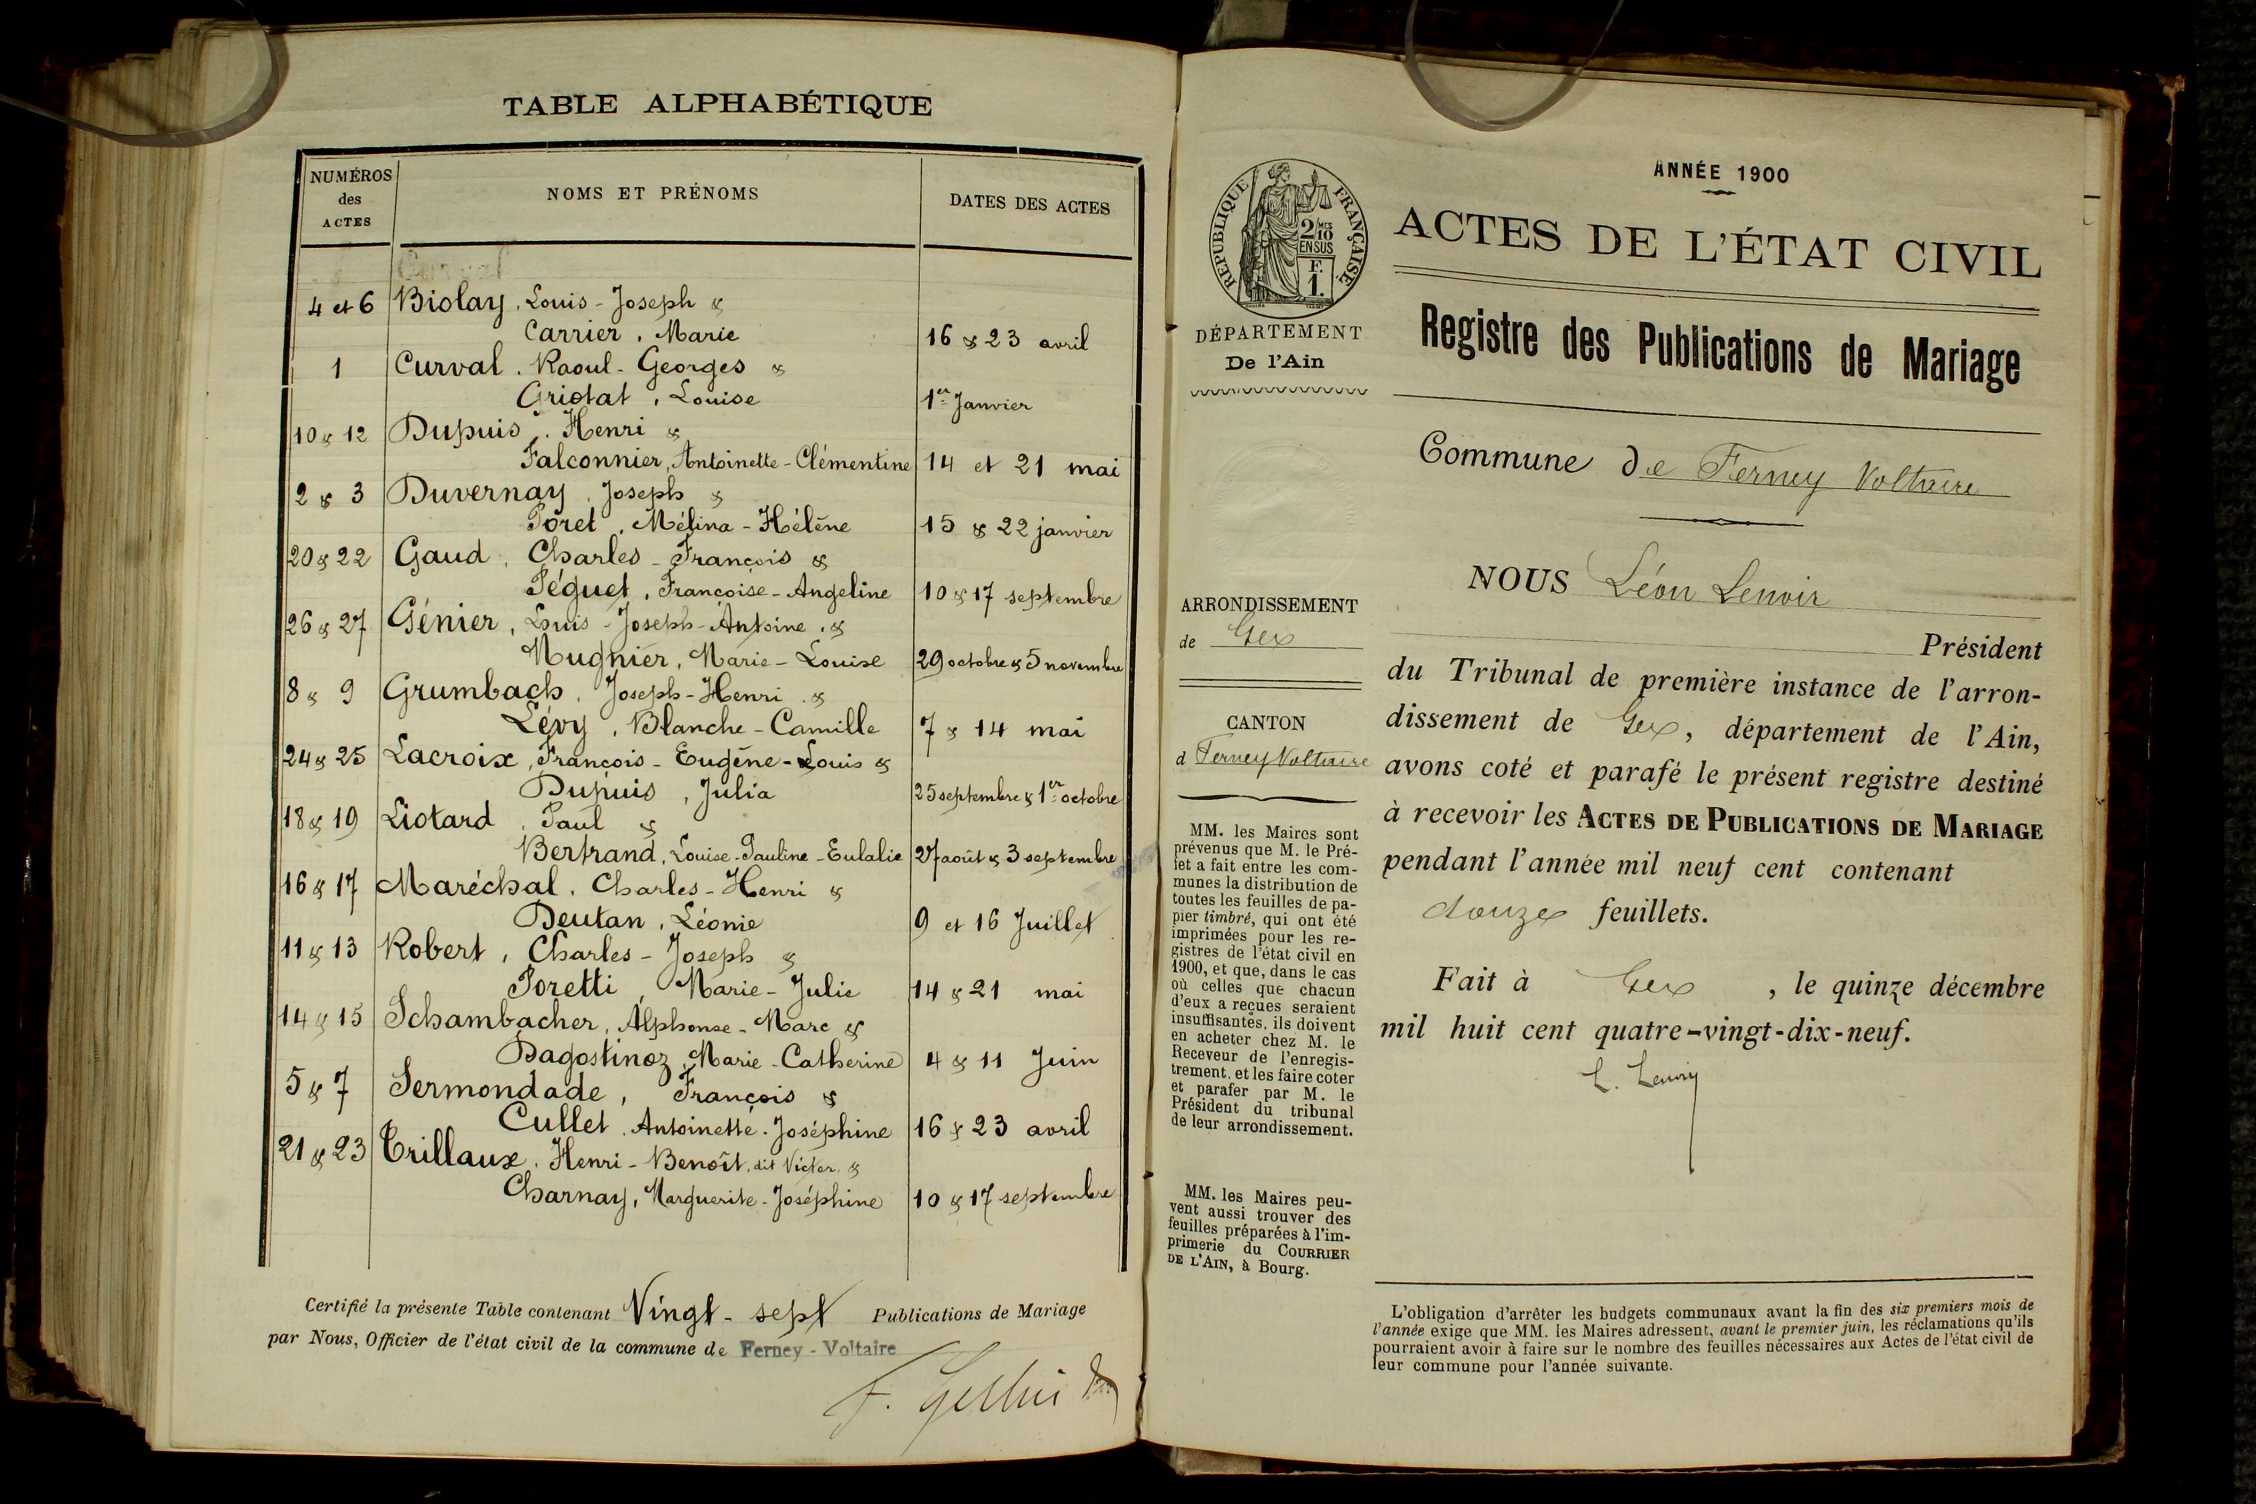 TABLE ALPHABÉTIQUE
NUMÉROS
des
ACTES
NOMS ET PRÉNOMS
DATES DES ACTES
4 et 6 Biolay, Louis-Joseph &
Carrier, Marie 16 & 23 avril
1 Curval, Raoul-Georges &
Griotat, Louise 1er Janvier
10 & 12 Dupuis, Henri &
Falconnier, Antoinette-Clémentine 14 et 21 mai
2 & 3 Duvernay, Joseph &
Poret, Mélina-Hélène 15 & 22 janvier
20 & 22 Gaud, Charles-François &
Péguet, Françoise-Angeline 10 & 17 septembre
26 & 27 Génier, Louis-Joseph-Antoine, &
Mugnier, Marie-Louise 29 octobre & 5 novembre
8 & 9 Grumbach, Joseph-Henri, &
Lévy, Blanche-Camille 7 & 14 mai
24 & 25 Lacroix, François-Eugène-Louis &
Dupuis, Julia 25 septembre & 1er octobre
18 & 19 Liotard, Paul &
Bertrand, Louise-Pauline-Eulalie 27 août & 3 septembre
16 & 17 Maréchal, Charles-Henri &
Deutan, Léonie 9 et 16 Juillet
11 & 13 Robert, Charles-Joseph &
Poretti, Marie-Julie 14 & 21 mai
14 & 15 Schambacher, Alphonse-Marc &
Dagostinoz, Marie-Catherine 4 & 11 Juin
5 & 7 Sermondade, François &
Cullet, Antoinette-Joséphine 16 & 23 avril
21 & 23 Trillaux, Henri-Benoît, dit Victor, &
Charnay, Marguerite-Joséphine 10 & 17 septembre
Certifié la présente Table contenant Vingt-sept Publications de Mariage
par Nous, Officier de l'état civil de la commune de Ferney-Voltaire
ANNÉE 1900
ACTES DE L'ÉTAT CIVIL
Registre des Publications de Mariage
RÉPUBLIQUE FRANÇAISE
2/10 MES
EN SUS
F.
1.
DÉPARTEMENT
De l'Ain
Commune de Ferney Voltaire
ARRONDISSEMENT
de Gex
CANTON
d Ferney Voltaire
MM. les Maires sont
prévenus que M. le Pré-
fet a fait entre les com-
munes la distribution de
toutes les feuilles de pa-
pier timbré, qui ont été
imprimées pour les re-
gistres de l'état civil en
1900, et que, dans le cas
où celles que chacun
d'eux a reçues seraient
insuffisantes, ils doivent
en acheter chez M. le
Receveur de l'enregis-
trement, et les faire coter
et parafer par M. le
Président du tribunal
de leur arrondissement.
MM. les Maires peu-
vent aussi trouver des
feuilles préparées à l'im-
primerie du COURRIER
DE L'AIN, à Bourg.
NOUS Léon Lenoir
Président
du Tribunal de première instance de l'arron-
dissement de Gex, département de l'Ain,
avons coté et parafé le présent registre destiné
à recevoir les ACTES DE PUBLICATIONS DE MARIAGE
pendant l'année mil neuf cent contenant
douze feuillets.
Fait à Gex, le quinze décembre
mil huit cent quatre-vingt-dix-neuf.
L. Lenoir
L'obligation d'arrêter les budgets communaux avant la fin des six premiers mois de
l'année exige que MM. les Maires adressent, avant le premier juin, les réclamations qu'ils
pourraient avoir à faire sur le nombre des feuilles nécessaires aux Actes de l'état civil de
leur commune pour l'année suivante.